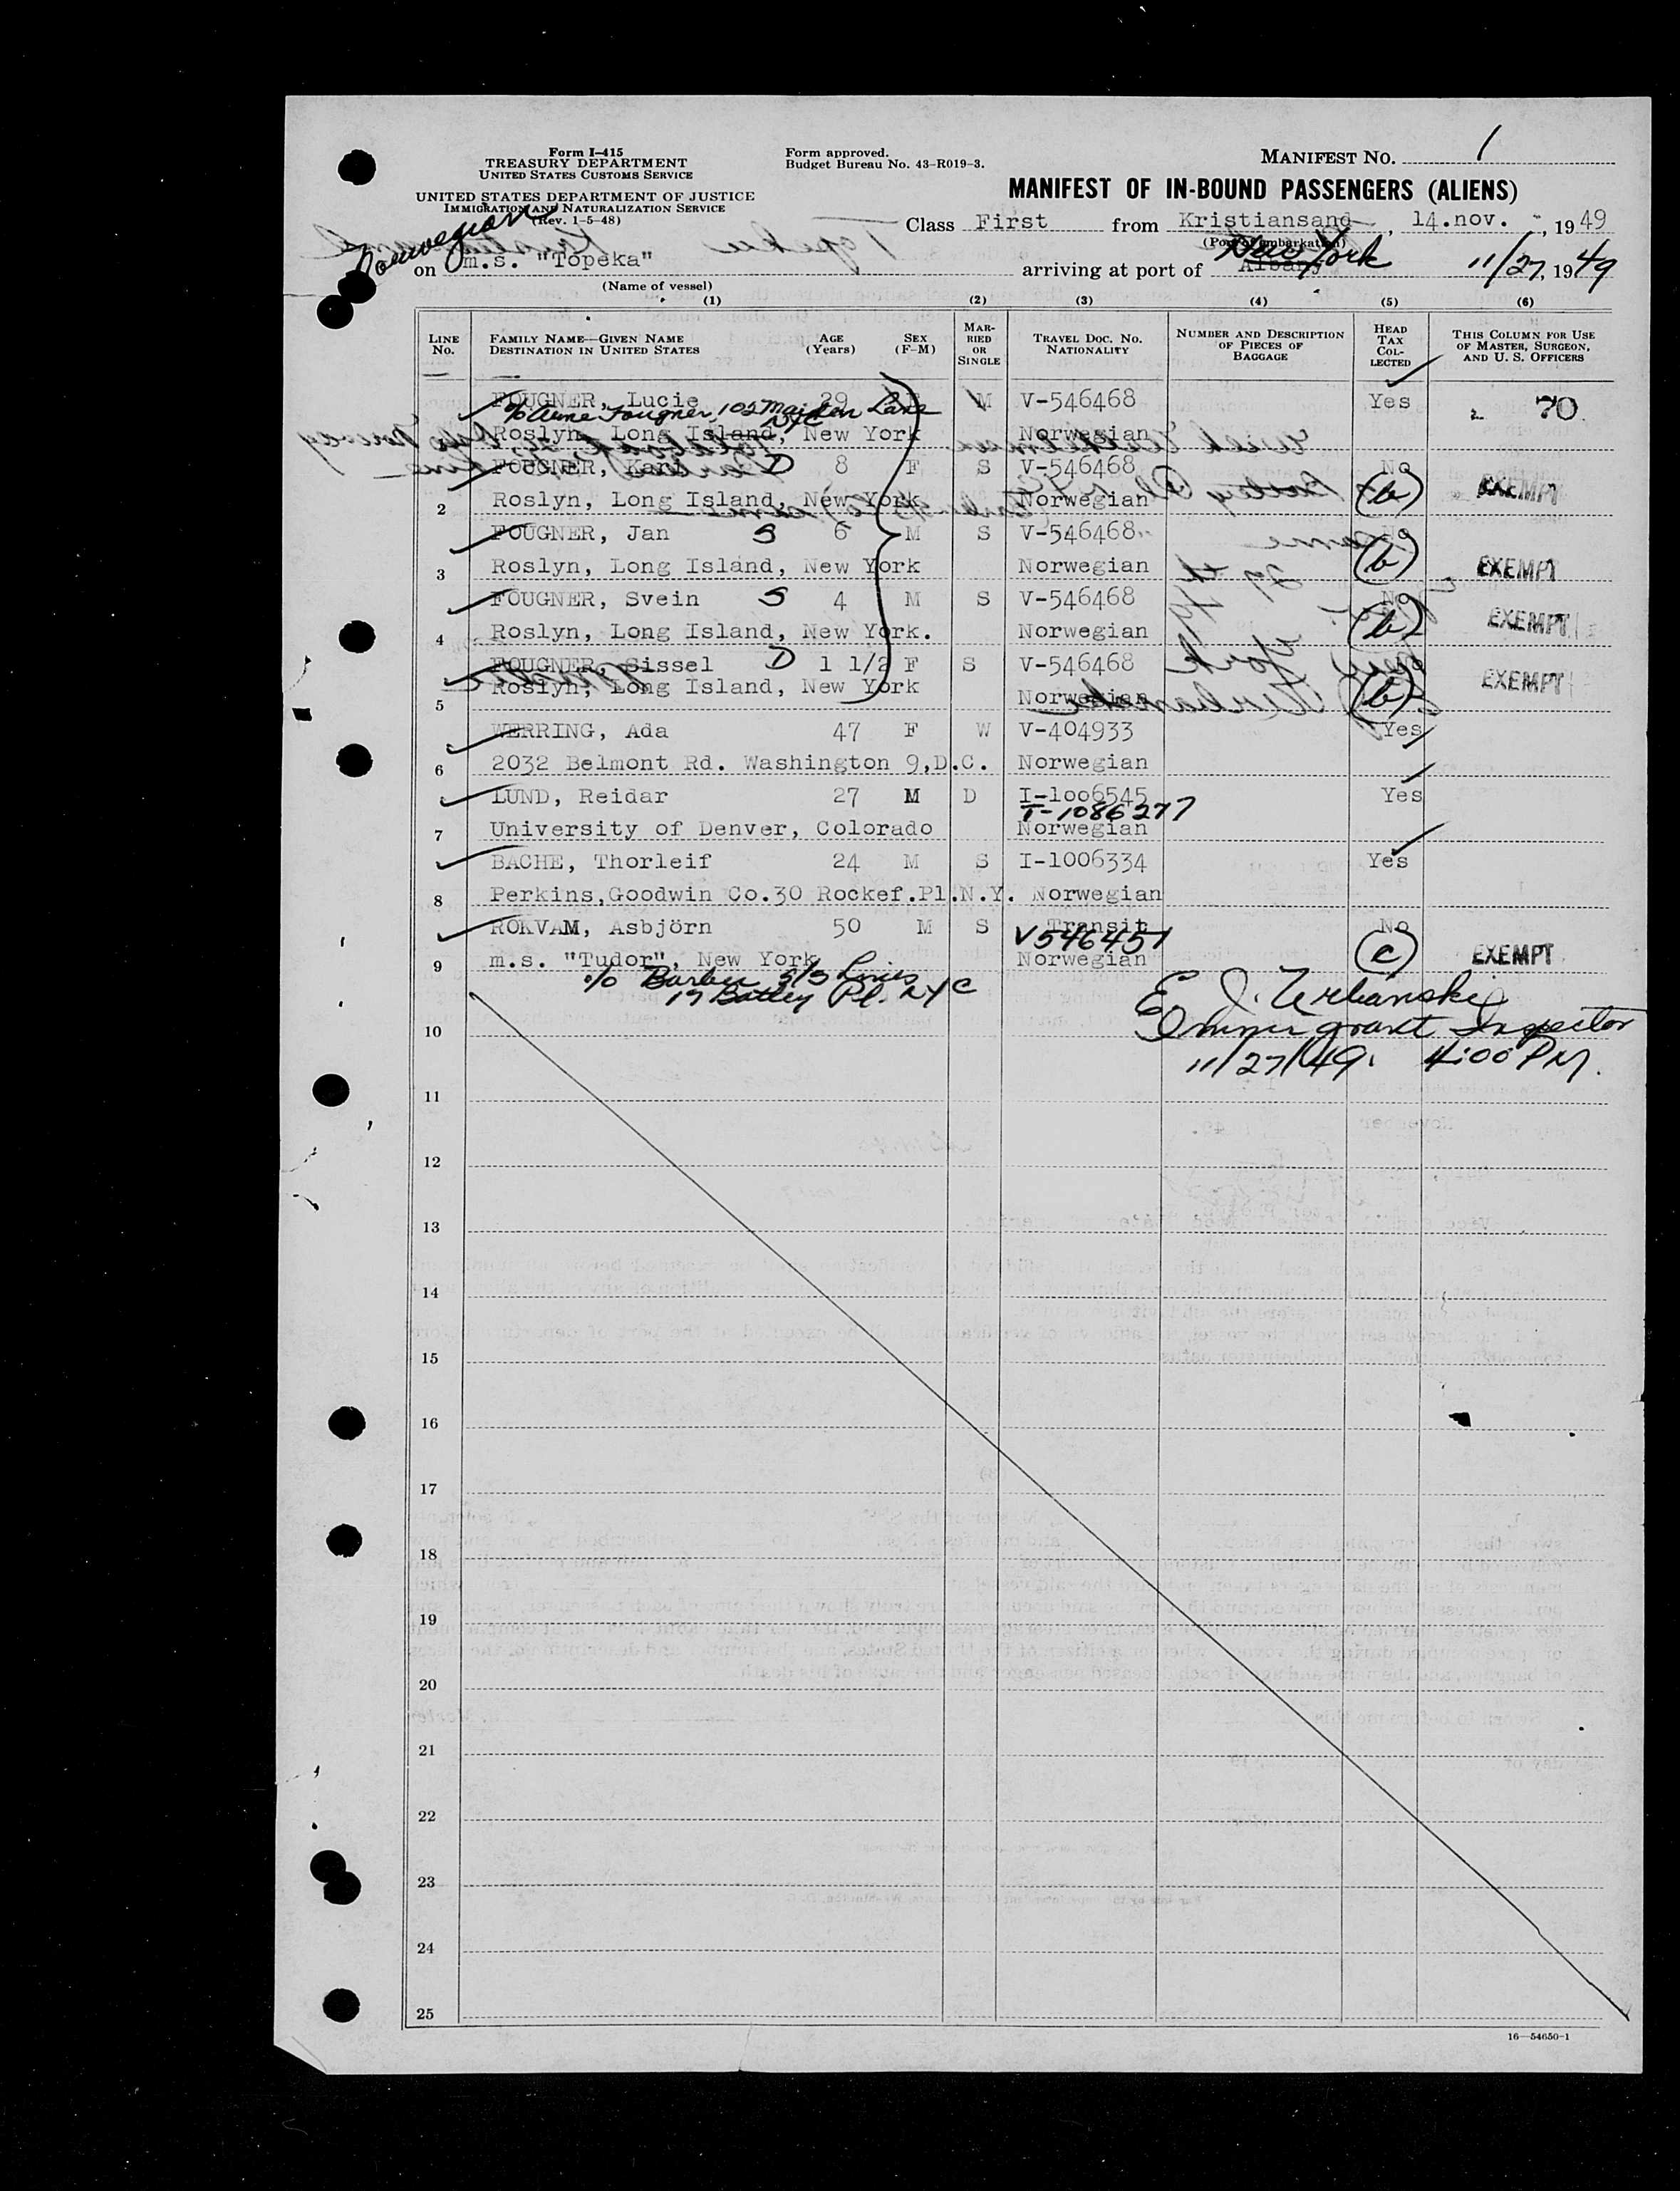 Form I-415
TREASURY DEPARTMENT
UNITED STATES CUSTOMS SERVICE
UNITED STATES DEPARTMENT OF JUSTICE
IMMIGRATION AND NATURALIZATION SERVICE
(Rev. 1-5-48)
Form approved.
Budget Bureau No. 43-R019-3.
MANIFEST NO. 1
MANIFEST OF IN-BOUND PASSENGERS (ALIENS)
Class First from Kristiansand, 14.nov., 1949
(Port of embarkation)
Norwegian
on m.s. "Topeka" arriving at port of Albany New York 11/27, 1949
(Name of vessel)
(1) (2) (3) (4) (5) (6)
LINE No. FAMILY NAME—GIVEN NAME DESTINATION IN UNITED STATES AGE (Years) SEX (F-M) MARRIED OR SINGLE TRAVEL DOC. NO. NATIONALITY NUMBER AND DESCRIPTION OF PIECES OF BAGGAGE HEAD TAX COLLECTED THIS COLUMN FOR USE OF MASTER, SURGEON, AND U. S. OFFICERS
FOUGNER, Lucie 29 F M V-546468 Yes 70
c/o Arne Fougner, 102 Maiden Lane NYC
Roslyn, Long Island, New York Norwegian
FOUGNER, Kari D 8 F S V-546468 No
2 Roslyn, Long Island, New York Norwegian (b) EXEMPT
FOUGNER, Jan S 6 M S V-546468 No
3 Roslyn, Long Island, New York Norwegian (b) EXEMPT
FOUGNER, Svein S 4 M S V-546468 No
4 Roslyn, Long Island, New York. Norwegian (b) EXEMPT
FOUGNER, Sissel D 1 1/2 F S V-546468
5 Roslyn, Long Island, New York Norwegian (b) EXEMPT
WERRING, Ada 47 F W V-404933 Yes
6 2032 Belmont Rd. Washington 9,D.C. Norwegian
LUND, Reidar 27 M D I-1006545 Yes
T-1086277
7 University of Denver, Colorado Norwegian
BACHE, Thorleif 24 M S I-1006334 Yes
8 Perkins,Goodwin Co.30 Rockef.Pl.N.Y. Norwegian
ROKVAM, Asbjörn 50 M S Transit No
V546451
9 m.s. "Tudor", New York Norwegian (c) EXEMPT
c/o Barber S/S Lines
17 Battey Pl. NYC
E. J. Urbanski
Immigrant Inspector
11/27/49. 4:00 PM.
10
11
12
13
14
15
16
17
18
19
20
21
22
23
24
25
16—54650-1